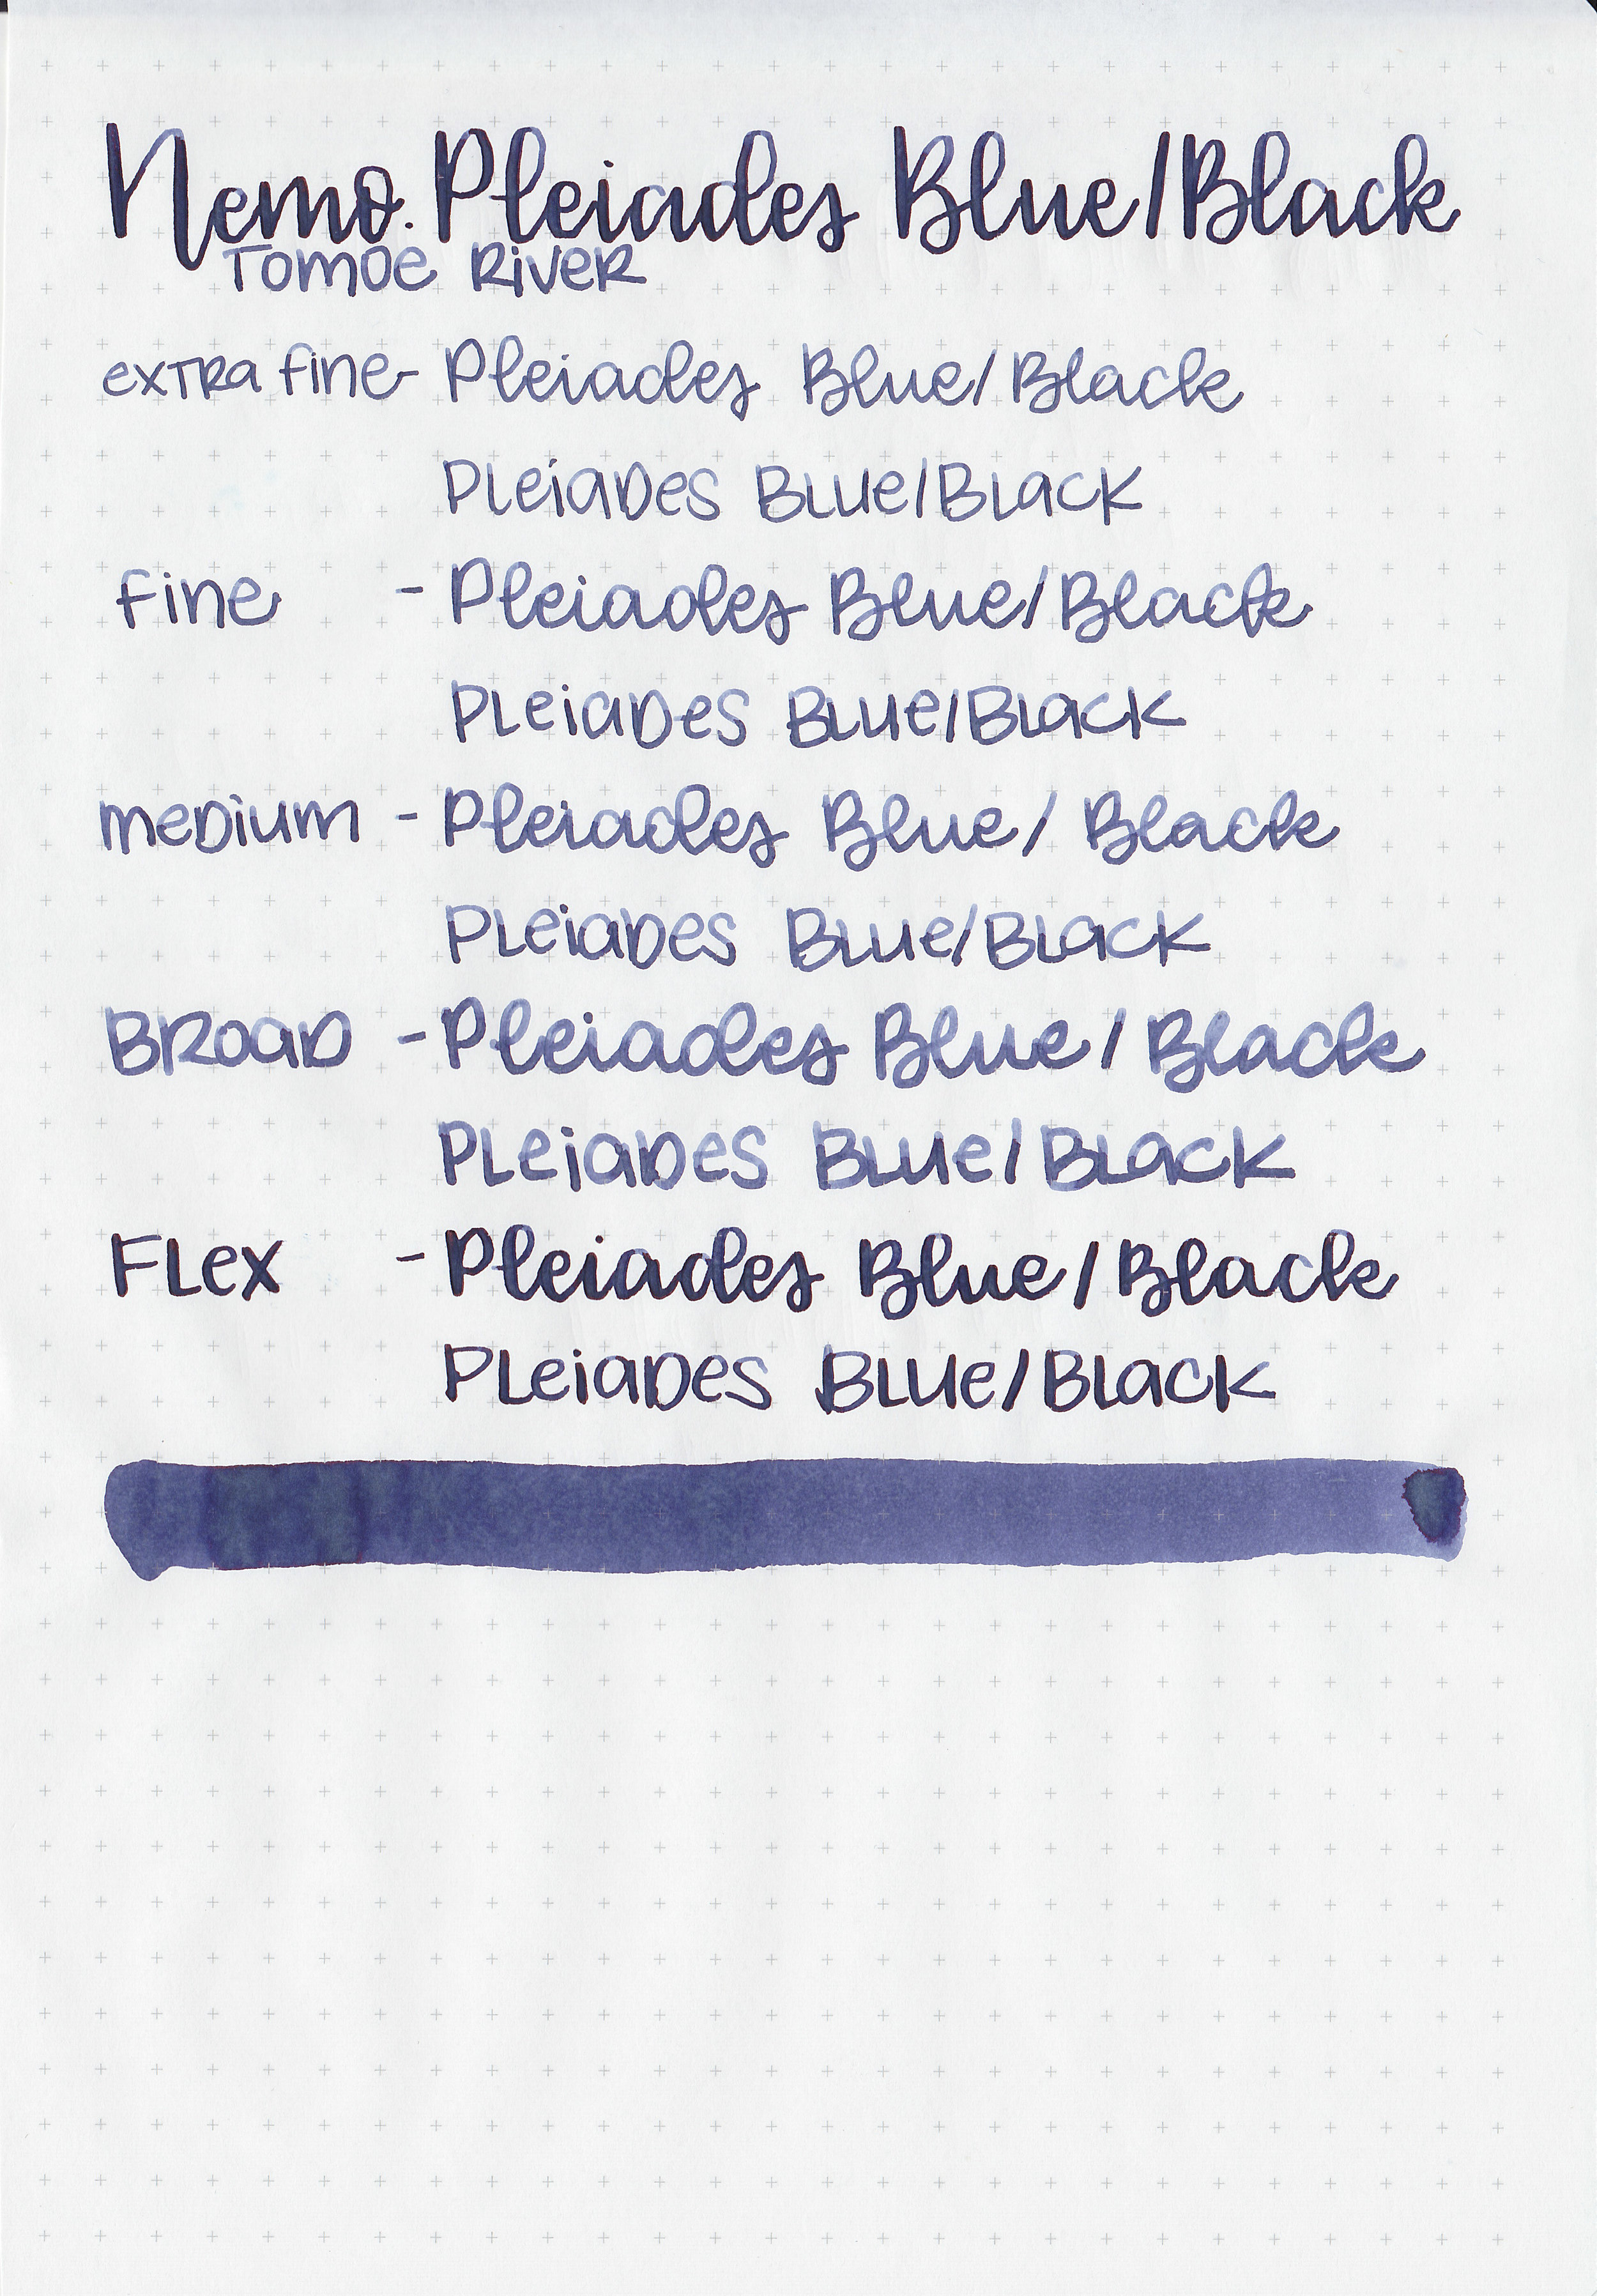 Nemo. Pleiades Blue/Black
Tomoe River
extra fine - Pleiades Blue/Black
Pleiades Blue/Black
fine - Pleiades Blue/Black
Pleiades Blue/Black
medium - Pleiades Blue/ Black
Pleiades Blue/Black
Broad - Pleiades Blue/Black
Pleiades Blue/Black
Flex - Pleiades Blue/Black
Pleiades Blue/Black